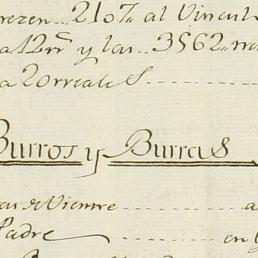 rezen.. 2107 al Vincul
a 12 rr.s y las.. 3562..
a 20 reales
Burros y Burras
de Vientre a
Padre en